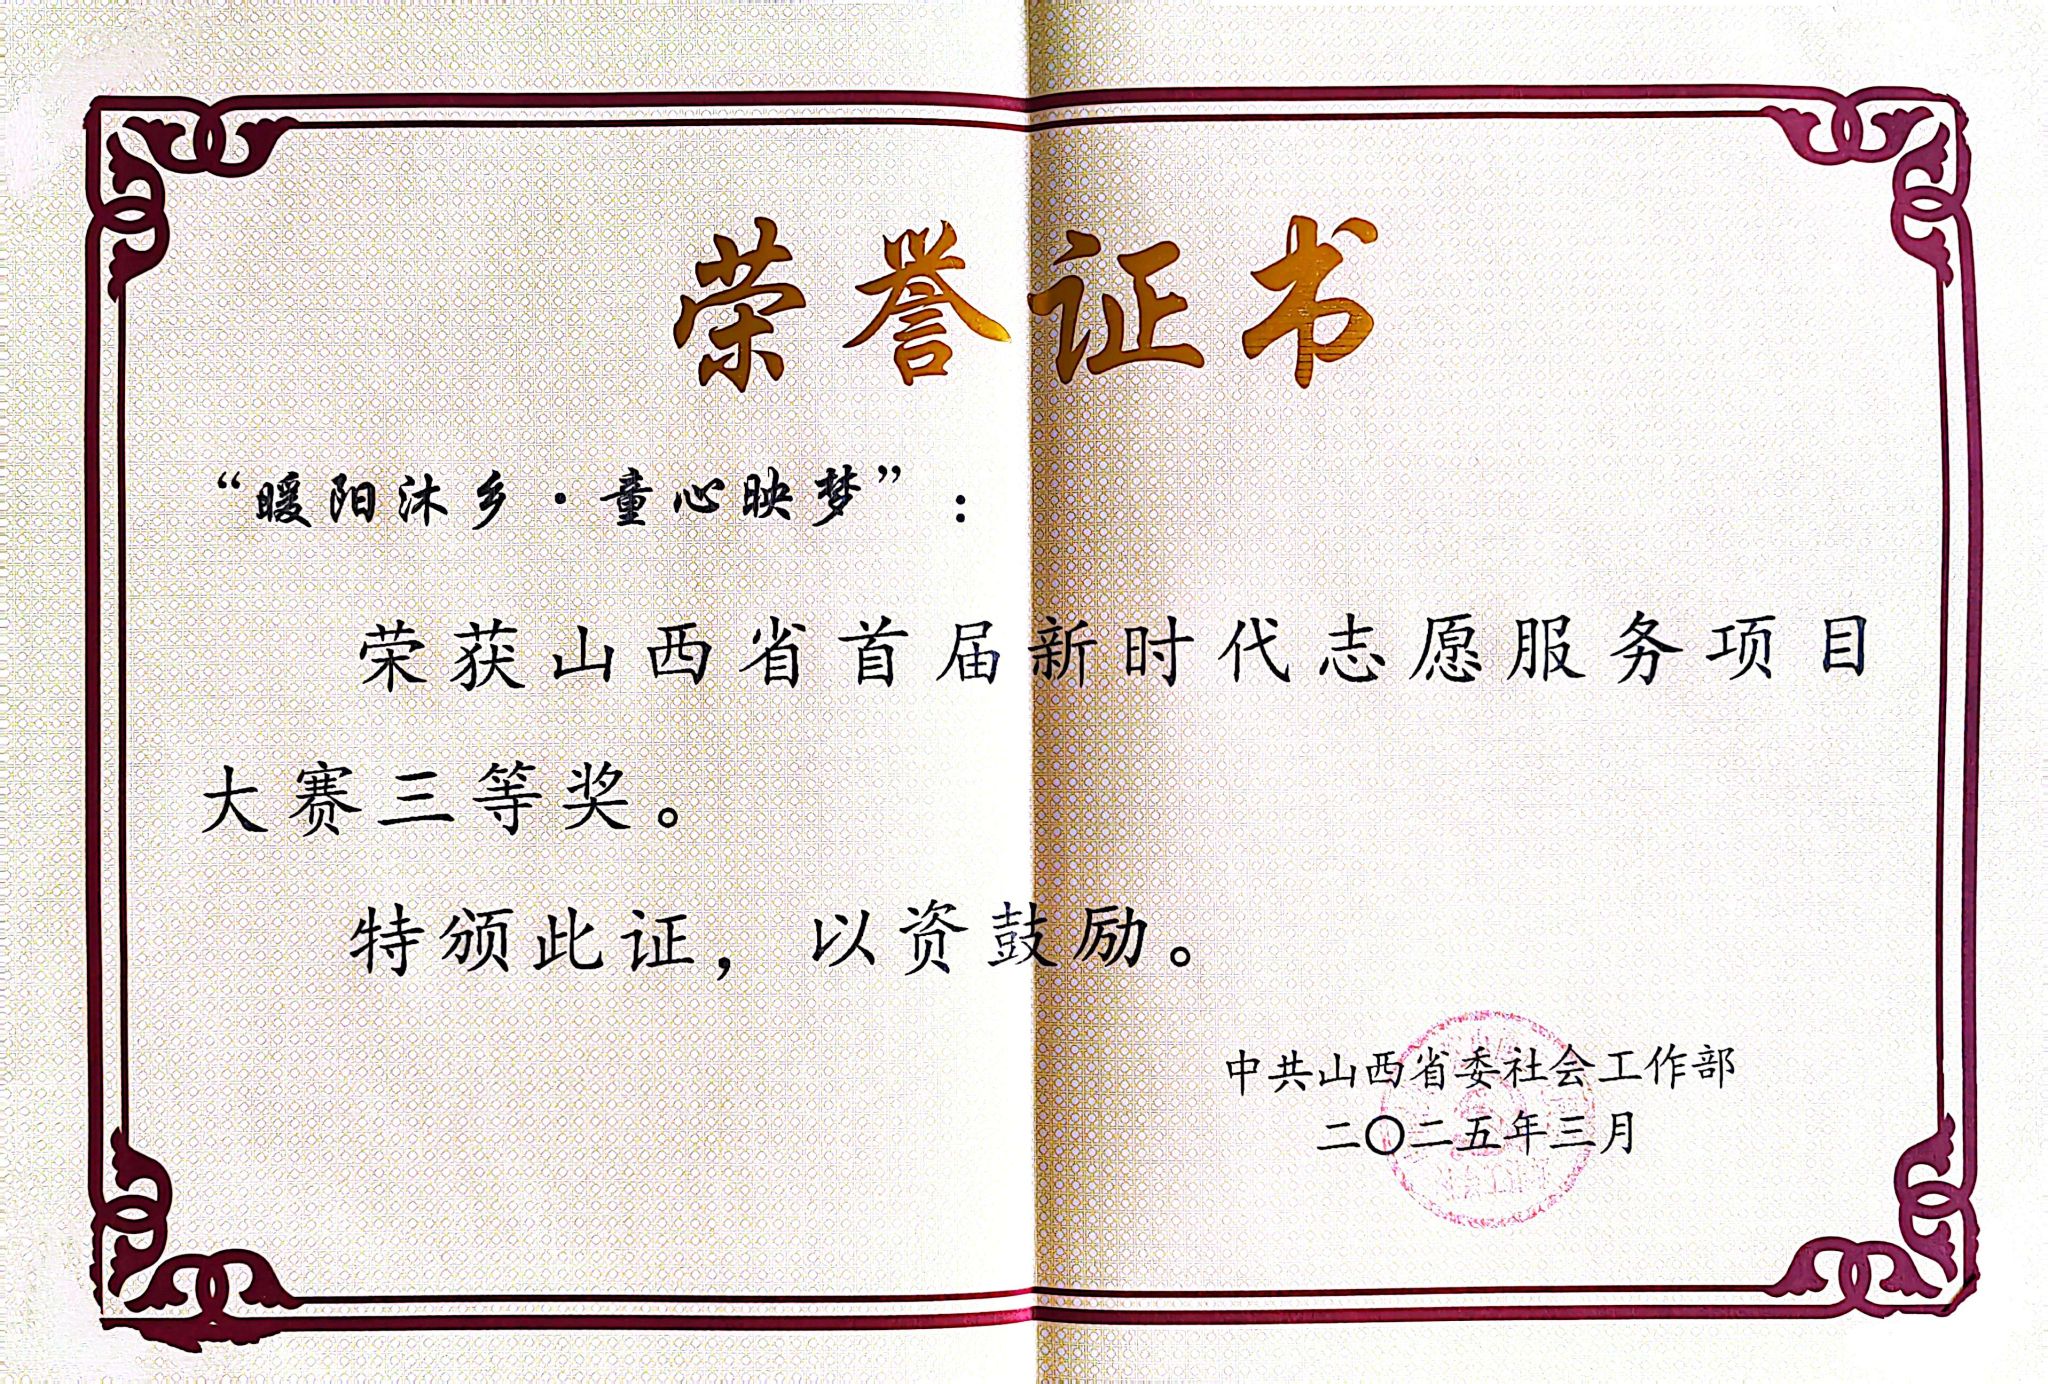 荣誉证书
“暖阳沐乡·童心映梦”：
荣获山西省首届新时代志愿服务项目
大赛三等奖。
特颁此证，以资鼓励。
中共山西省委社会工作部
二〇二五年三月